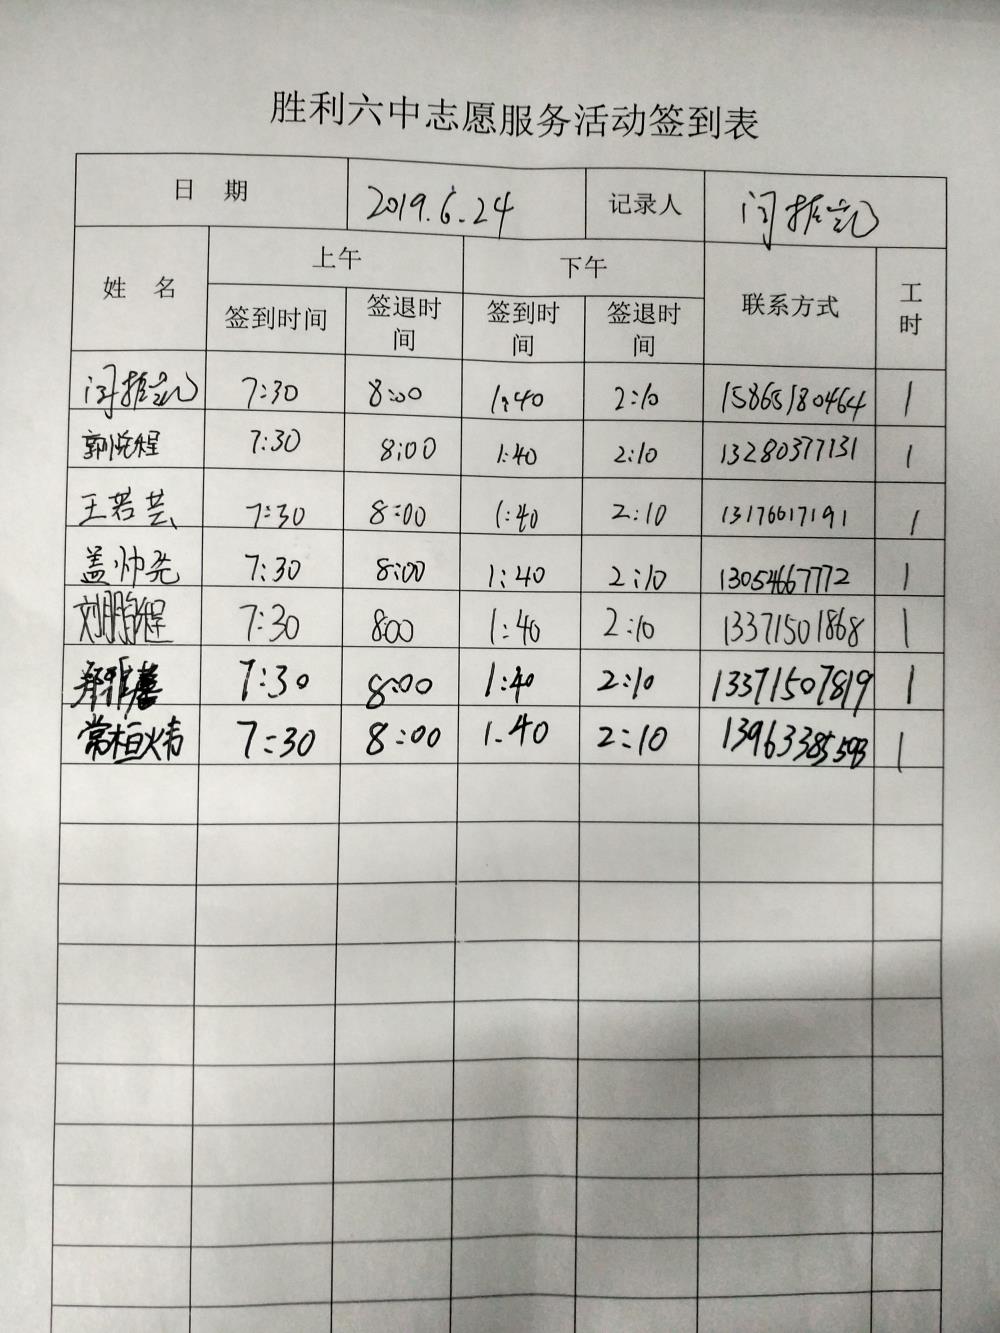 胜利六中志愿服务活动签到表
日 期 2019.6.24 记录人 闫振凯
姓 名 上午 下午 联系方式 工时
签到时间 签退时间 签到时间 签退时间
闫振凯 7:30 8:00 1:40 2:10 15865180464 1
郭悦程 7:30 8:00 1:40 2:10 13280377131 1
王若芸 7:30 8:00 1:40 2:10 13176617191 1
盖帅先 7:30 8:00 1:40 2:10 13054667772 1
刘鹏程 7:30 8:00 1:40 2:10 13371501868 1
7:30 8:00 1:40 2:10 13371507819 1
常桓炜 7:30 8:00 1.40 2:10 13963385593 1